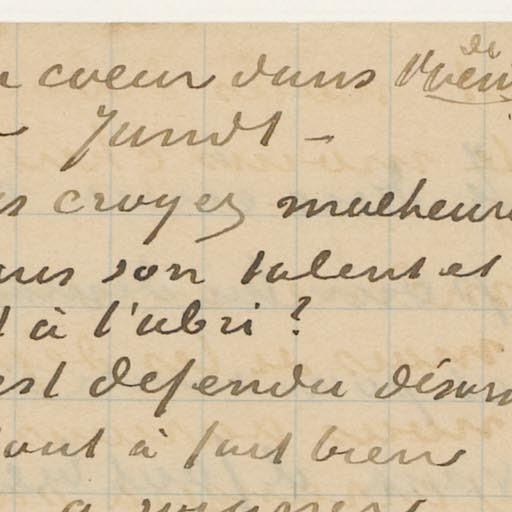 coeur dans
Jundt -
croyez malheure
son talent et
à l'abri ?
est defendu désor
tout à fait bien